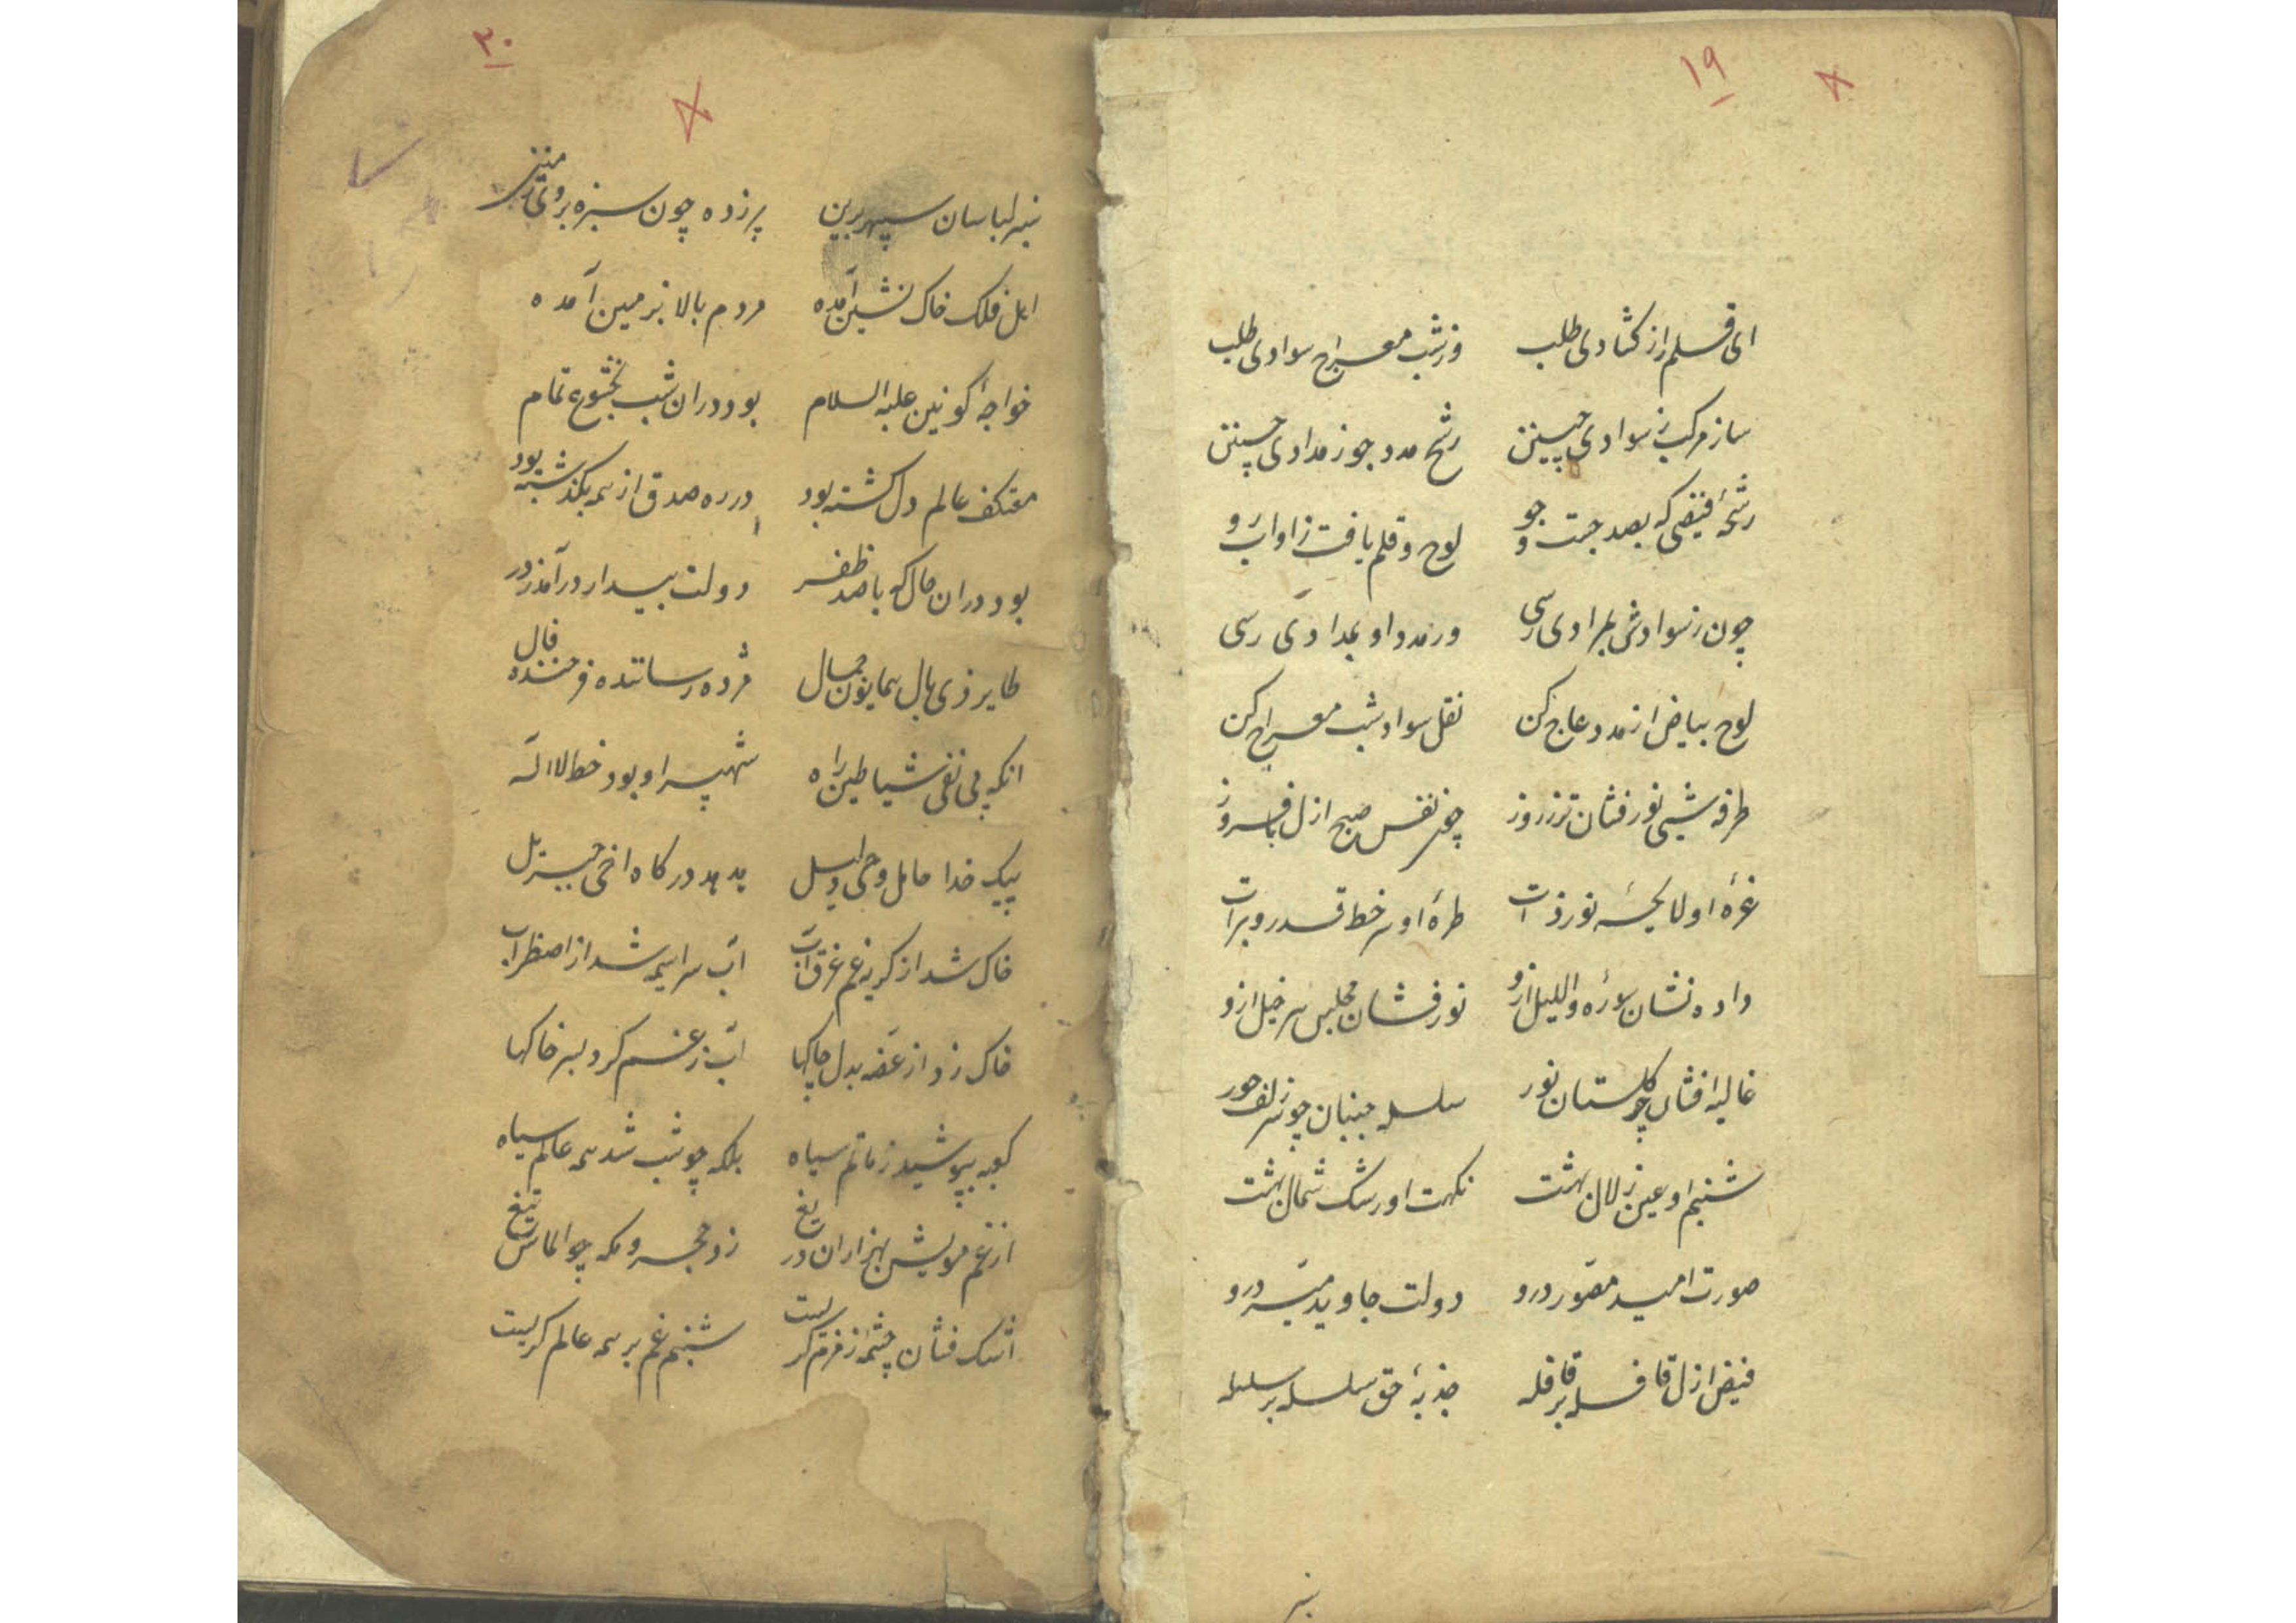 ۱۹
ای قلم از کشادی طلب وز شب معراج سوادی طلب
ساز مرکب ز سوادی چنین رشح مدد جو ز مدادی چنین
رشحهٔ فیضی که بصد جست و جو لوح و قلم یافت ازو آب رو
چون ز سوادش بمرادی رسی وز مدد او بمدادی رسی
لوح بیاض از مدد عاج کن نقل سواد شب معراج کن
طرفه شبی نور فشان تر ز روز چون نفس صبح ازل
غرهٔ او لایحهٔ نور ذات طرهٔ او سر خط قدر و برات
داده نشان سورهٔ واللیل ازو نور فشان مجلس سر خیل ازو
غالیه افشان چو گلستان نور سلسله جنبان چو سر زلف حور
شبنم او عین زلال بهشت نکهت او رشک شمال بهشت
صورت امید مصور درو دولت جاوید میسر درو
فیض ازل قافله بر قافله جذبهٔ حق سلسله بر سلسله
۲۰
سبز لباسان سپهر برین پر زده چون سبزه بروی زمین
اهل فلک خاک نشین آمده مردم بالا بزمین آمده
خواجهٔ کونین علیه السلام بود دران شب بخشوع تمام
معتکف عالم دل گشته بود در ره صدق از همه بگذشته بود
بود دران حال که با صد ظفر دولت بیدار درآمد ز در
طایر فرخ بال همایون جمال مژده رساننده فرخنده فال
انکه پی نفی شیاطین راه شهپر او بود خط لا اله
پیک خدا حامل وحی و دلیل هدهد درکاه اخی جبرئیل
خاک شد از کریه غم غرق آب آب سراسیمه شد از اضطراب
خاک زد از غصه بدل چاکها آب ز غم کرد بسر خاکها
کعبه بپوشید ز ماتم سیاه بلکه چو شب شد همه عالم سیاه
از غم مویش بهزاران دریغ زد حجر و مکه چو الماس تیغ
اشک فشان چشمه زمزم کریست شبنم غم بر همه عالم کریست